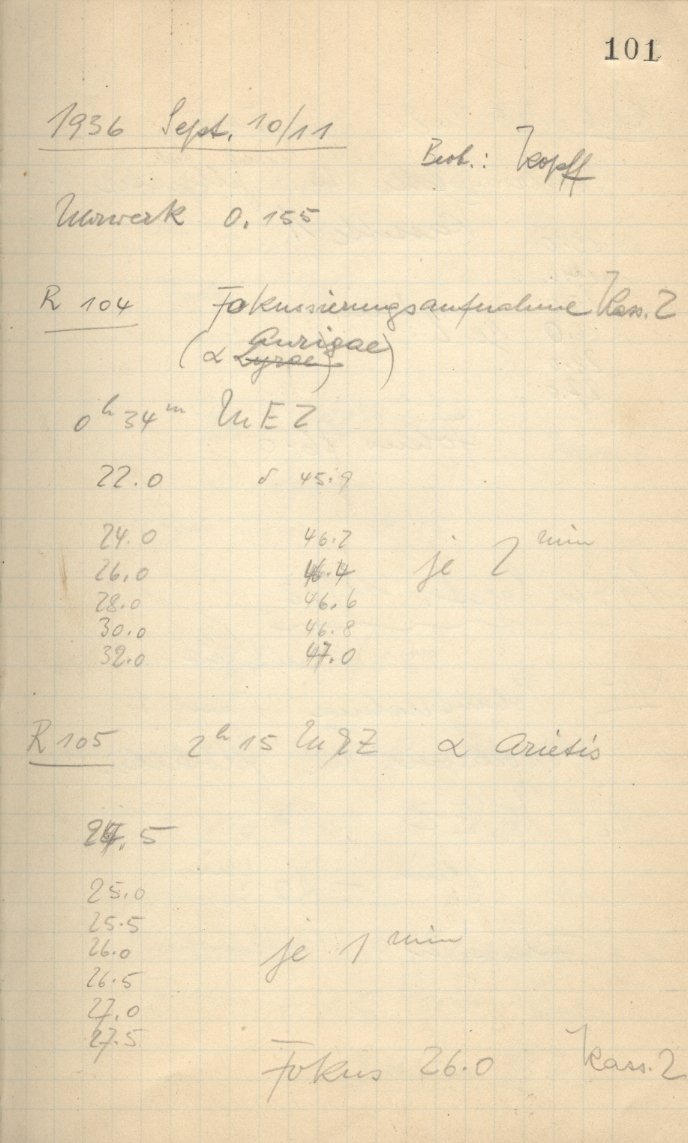 101
1936 Sept. 10/11
Beob.: Kopff
Uhrwerk 0.155
R 104 Fokussierungsaufnahme Kass. 2
(α Lyrae Aurigae)
0h 34m MEZ
22.0 δ 45.9
24.0 46.2
26.0 46.4 je 2 min
28.0 46.6
30.0 46.8
32.0 47.0
R 105 2h 15 MEZ α Arietis
24.5
25.0
25.5
26.0 je 1 min
26.5
27.0
27.5
Fokus 26.0 Kass. 2